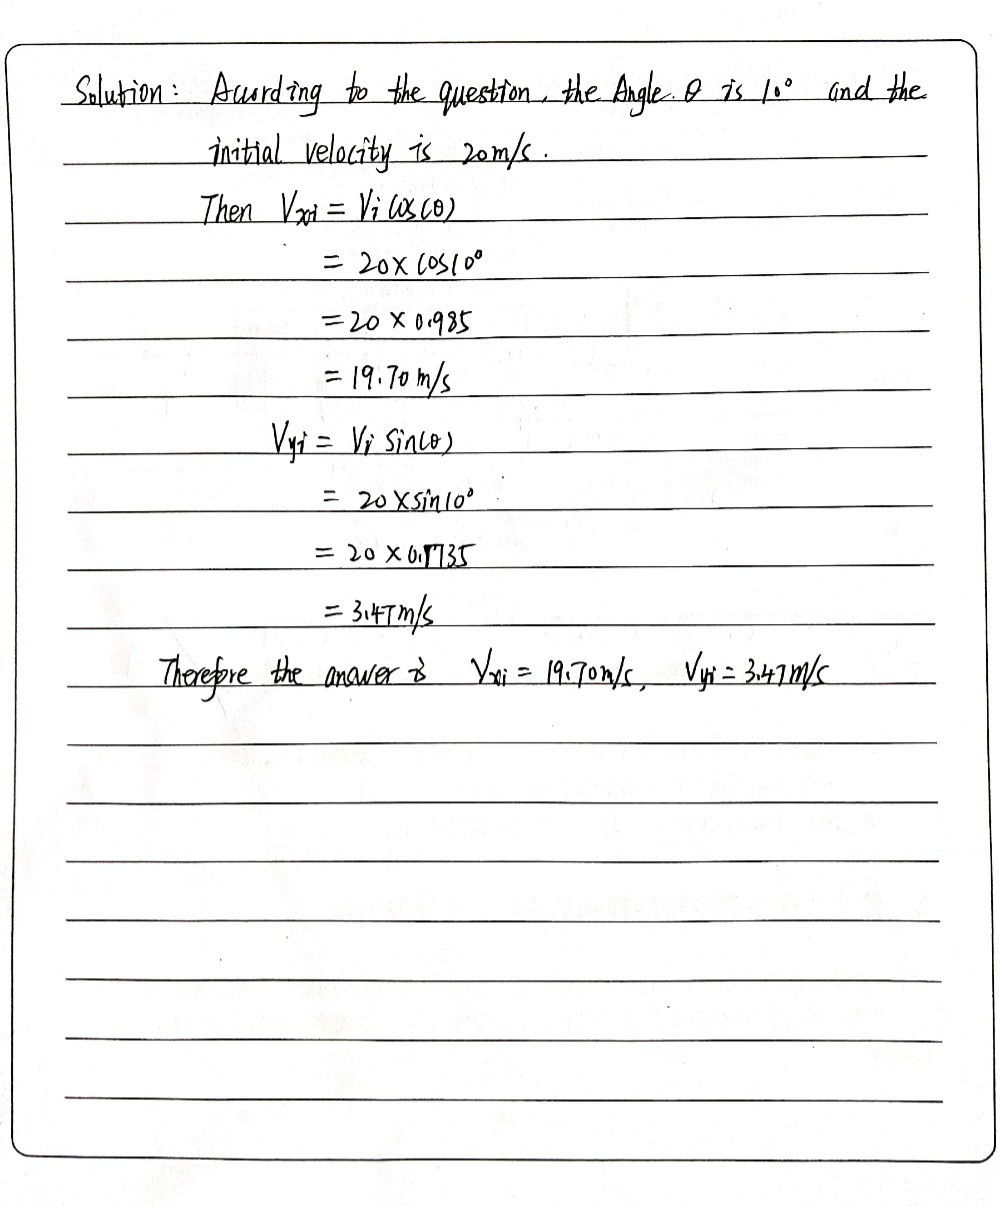 Solution: Acording to the question, the Angle. θ is 10° and the
initial velocity is 20m/s.
Then Vxi = Vi cos(θ)
= 20× cos10°
= 20 × 0.985
= 19.70 m/s
Vyi = Vi Sin(θ)
= 20 ×sin10°
= 20 × 0.1735
= 3.47m/s
Therefore the answer is Vxi = 19.70m/s, Vyi = 3.47m/s